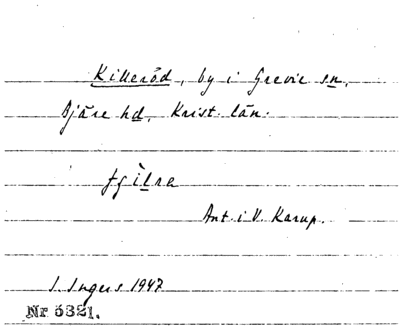 Killeröd, by i Grevie sn,
Bjäre hd, Krist. län.
Ant. i V. Karup.
I. Ingers 1947
Nr 5321.